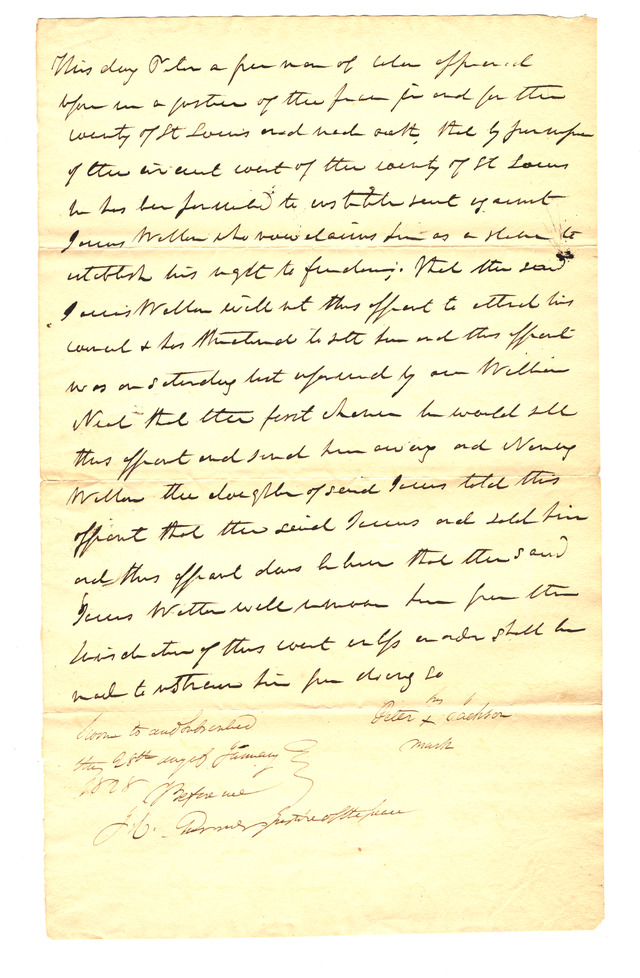 This day Peter a free man of color appeared
before me a justice of the peace in and for the
county of St Louis and made oath, that by permission
of the circuit court of the county of St Louis
he has been permitted to institute suit against
James Walton who now claims him as a slave to
establish his right to freedom; that the said
James Walton will not this affiant to attend his
counsel & has threatened to sell him and this affiant
was on saturday last informed by one William
Neal that the first chance he would sell
this affiant and send him away and Nancy
Walton the daughter of said James told this
affiant that the said James had sold him
and this affiant does believe that the said
James Walton will remove him from the
jurisdiction of this court unless an order shall be
made to restrain him from doing so
his
Peter x Jackson
mark
Sworn to and subscribed
this 28th day of January
1828 Before me
justice of the peace